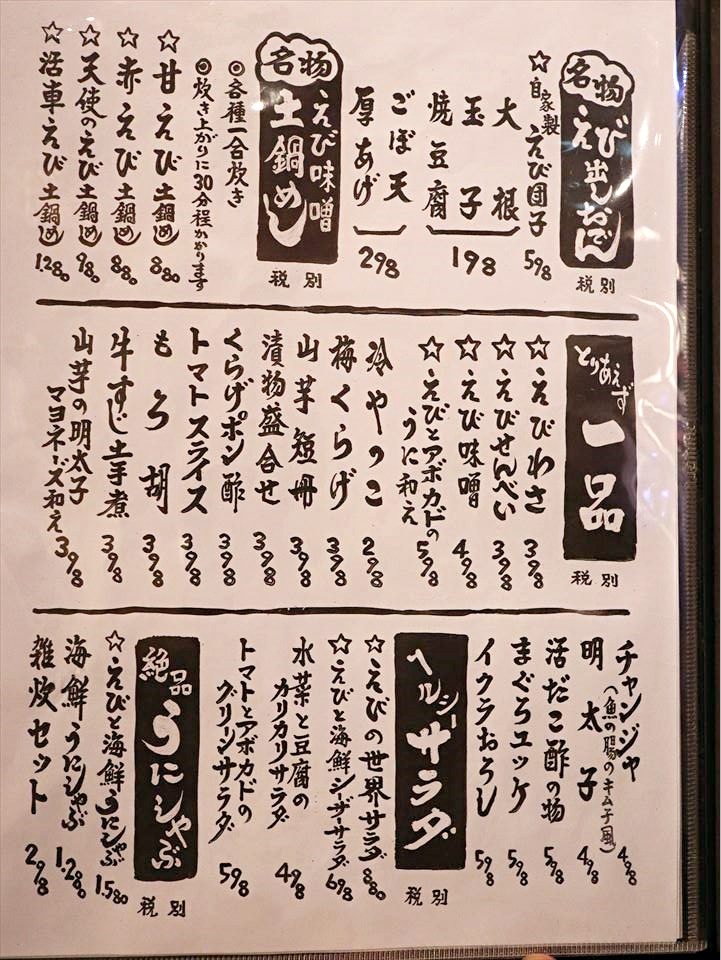 名物
えび出しおでん
税別
☆自家製えび団子 598
大根
玉子
焼豆腐
198
ごぼ天
厚あげ
298
名物
えび味噌
土鍋めし
税別
◎各種一合炊き
◎炊き上がりに30分程かかります
☆甘えび土鍋めし 880
☆赤えび土鍋めし 880
☆天使のえび土鍋めし 980
☆活車えび土鍋めし 1.280
とりあえず
一品
税別
☆えびわさ 398
☆えびせんべい 398
☆えび味噌 498
☆えびとアボカドの
うに和え 598
冷やっこ 298
梅くらげ 398
山芋短冊 398
漬物盛合せ 398
くらげポン酢 398
トマトスライス 398
もろ胡 398
牛すじ土手煮 398
山芋の明太子
マヨネーズ和え 398
チャンジャ
(魚の腸のキムチ風) 498
明太子 498
活だこ酢の物 598
まぐろユッケ 598
イクラおろし 598
ヘルシー
サラダ
税別
☆えびの世界サラダ 880
☆えびと海鮮シーザーサラダ 698
水菜と豆腐の
カリカリサラダ 498
トマトとアボカドの
グリーンサラダ 598
絶品
うにしゃぶ
税別
☆えびと海鮮うにしゃぶ 1.580
海鮮うにしゃぶ 1.280
雑炊セット 298